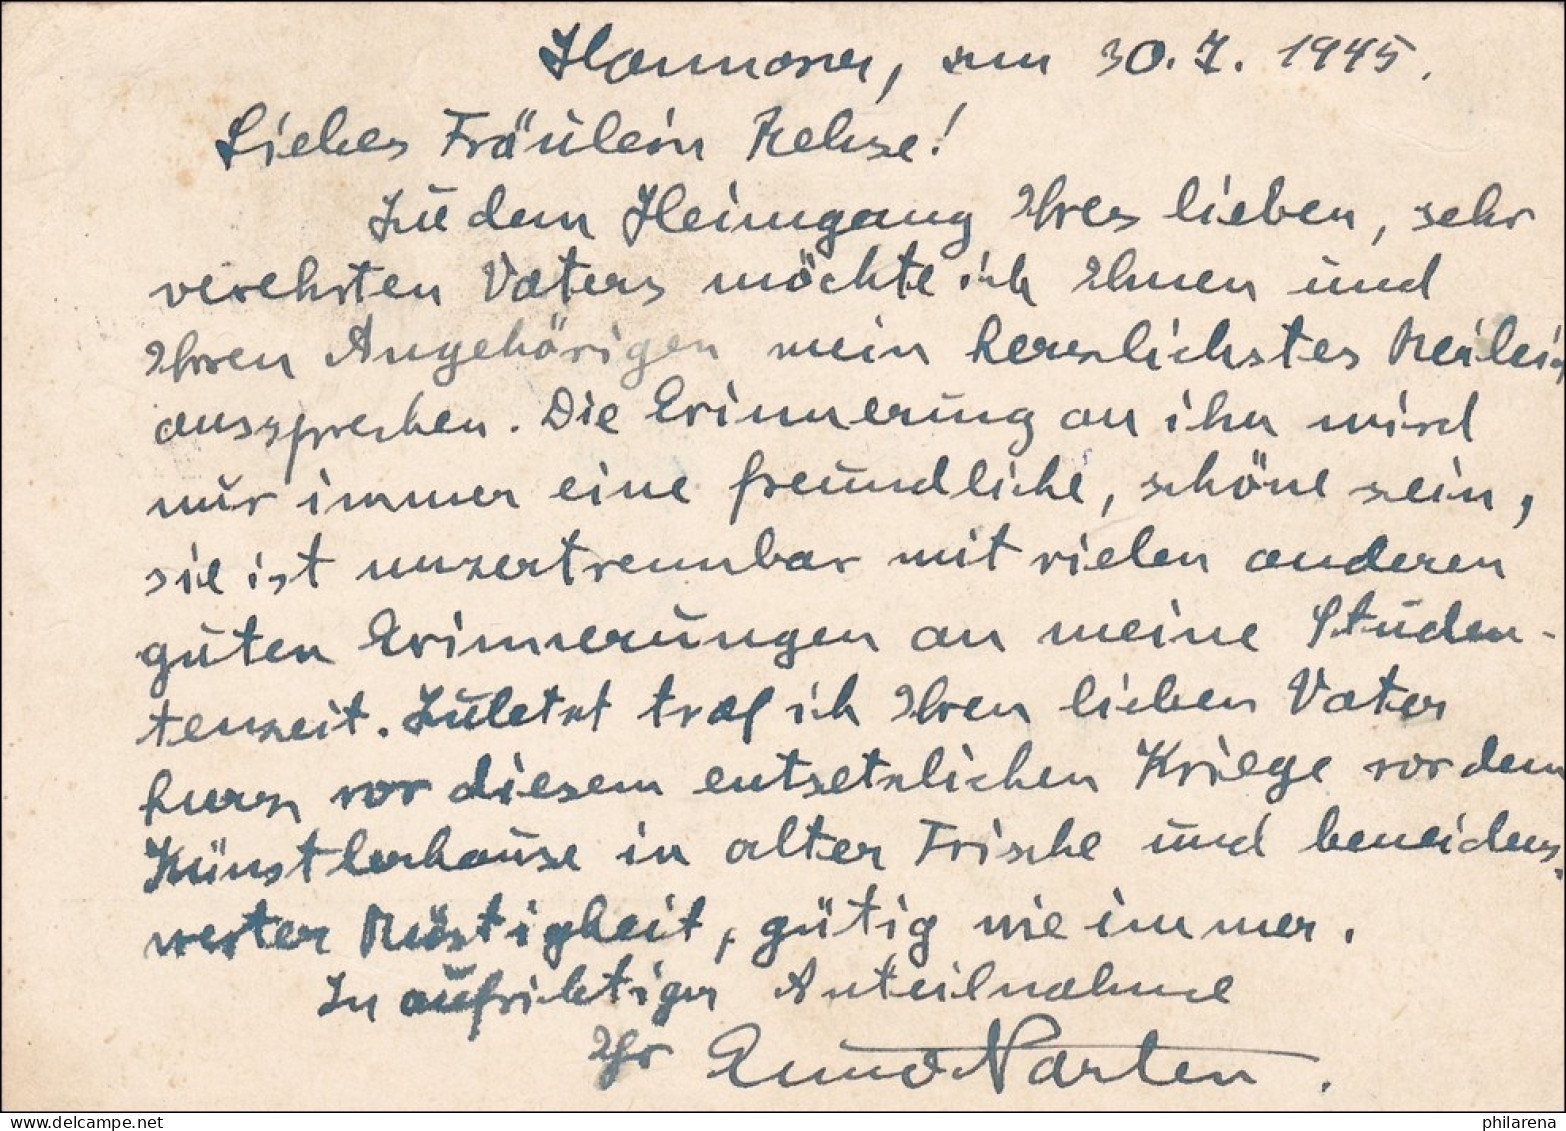 Hannover, am 30.7.1945.
Liebes Fräulein Rehse!
Zu dem Heimgang Ihres lieben, sehr
verehrten Vaters möchte ich Ihnen und
Ihren Angehörigen mein herzlichstes Beileid
aussprechen. Die Erinnerung an ihn wird
mir immer eine freundliche, schöne sein,
sie ist unzertrennbar mit vielen anderen
guten Erinnerungen an meine Studen-
tenzeit. Zuletzt traf ich Ihren lieben Vater
kurz vor diesem entsetzlichen Kriege vor dem
Künstlerhause in alter Frische und beneidens-
werter Rüstigkeit, gütig wie immer.
In aufrichtiger Anteilnahme
Ihr Narten.
philarena